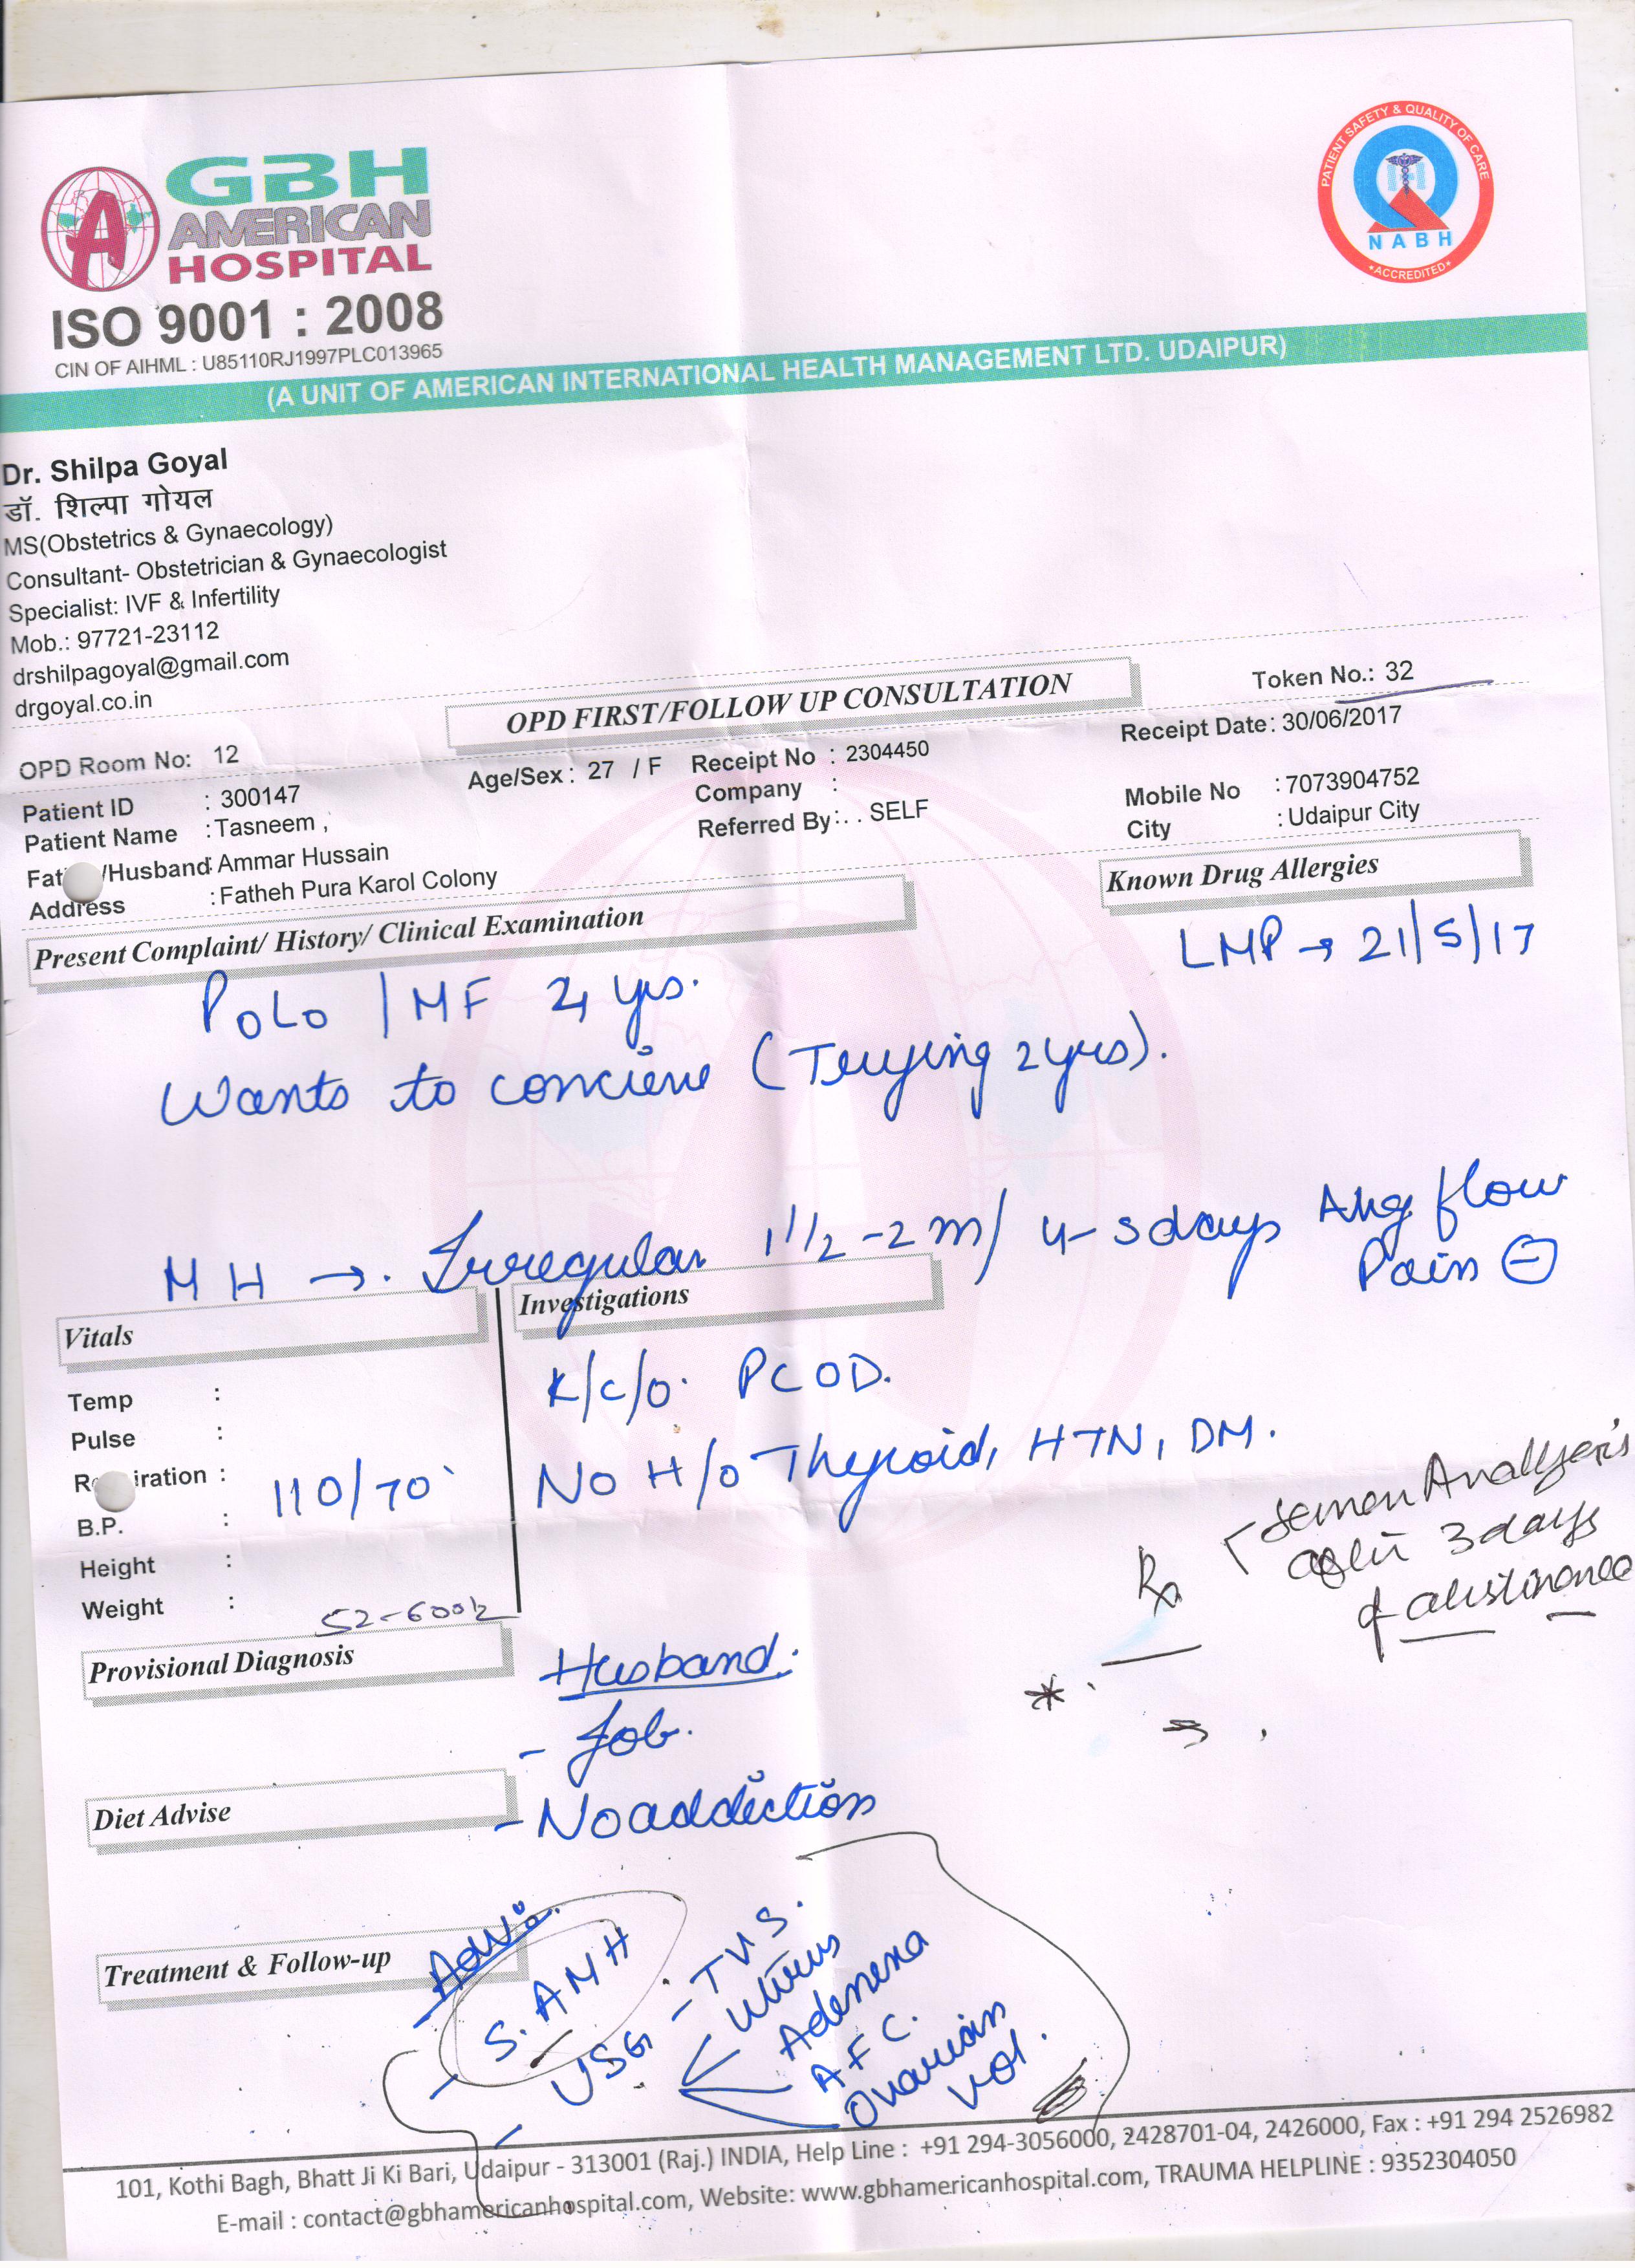 GBH
AMERICAN
HOSPITAL
ISO 9001 : 2008
CIN OF AIHML : U85110RJ1997PLC013965
PATIENT SAFETY & QUALITY OF CARE
NABH
*ACCREDITED*
(A UNIT OF AMERICAN INTERNATIONAL HEALTH MANAGEMENT LTD. UDAIPUR)
Dr. Shilpa Goyal
डॉ. शिल्पा गोयल
MS(Obstetrics & Gynaecology)
Consultant- Obstetrician & Gynaecologist
Specialist: IVF & Infertility
Mob.: 97721-23112
drshilpagoyal@gmail.com
drgoyal.co.in
OPD FIRST/FOLLOW UP CONSULTATION
Token No.: 32
OPD Room No: 12
Age/Sex : 27 / F
Receipt No : 2304450
Receipt Date : 30/06/2017
Patient ID : 300147
Company :
Mobile No : 7073904752
Patient Name : Tasneem ,
Referred By : . . SELF
City : Udaipur City
/Husband : Ammar Hussain
Address : Fatheh Pura Karol Colony
Known Drug Allergies
Present Complaint/ History/ Clinical Examination
LMP → 21/5/17
P0L0 / MF yrs.
Wants to concieve (Trying 2yrs).
MH → Irregular 1 1/2 - 2 m/ 4-5days Avg flow
Pain ⊖
Vitals
Investigations
Temp :
Pulse :
iration :
B.P. : 110/70
Height :
Weight :
K/C/O. PCOD.
No H/o Thyroid, HTN, DM.
Rx
Semen Analysis
after 3 days
of abstinance
Provisional Diagnosis
Husband:
- Job.
- No addiction
Diet Advise
Treatment & Follow-up
Adv:
- S. AMH
- USG - TVS.
Uterus
Adenexa
AFC.
Ovarian
vol.
101, Kothi Bagh, Bhatt Ji Ki Bari, Udaipur - 313001 (Raj.) INDIA, Help Line : +91 294-3056000, 2428701-04, 2426000, Fax : +91 294 2526982
E-mail : contact@gbhamericanhospital.com, Website: www.gbhamericanhospital.com, TRAUMA HELPLINE : 9352304050